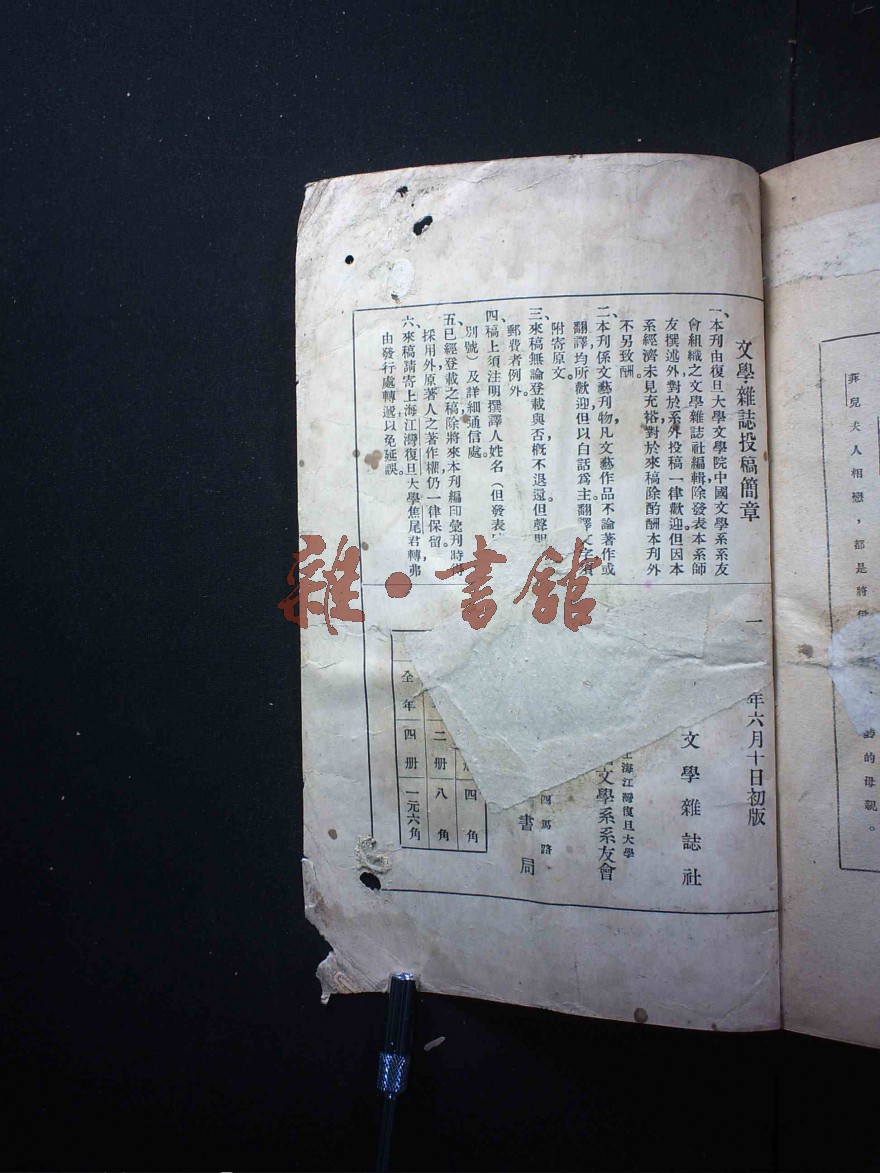 文學雜誌投稿簡章
一、本刊由復旦大學文學院中國文學系系友
會組織之文學雜誌社編輯除發表本系師
友撰述外對於系外投稿一律歡迎但因本
系經濟未見充裕對於來稿除酌酬本刊外，
不另致酬。
二、本刊係文藝刊物凡文藝作品不論著作或
翻譯均所歡迎但以白話爲主翻譯文字須
附寄原文。
三、來稿無論登載與否概不退還但聲明
郵費者例外。
四、稿上須注明撰譯人姓名（但發表
別號）及詳細通信處。
五、已經登載之稿除將來本刊編印彙刊時得
採用外原著人之著作權仍一律保留。
六、來稿請寄上海江灣復旦大學焦尾君轉弗
由發行處轉遞以免延誤。
一
年六月十日初版
文學雜誌社
上海江灣復旦大學
文學系系友會
四馬路
書局
四角
二册八角
全年四册一元六角
雜·書館
菲兒夫人相戀，都是將
的母親。